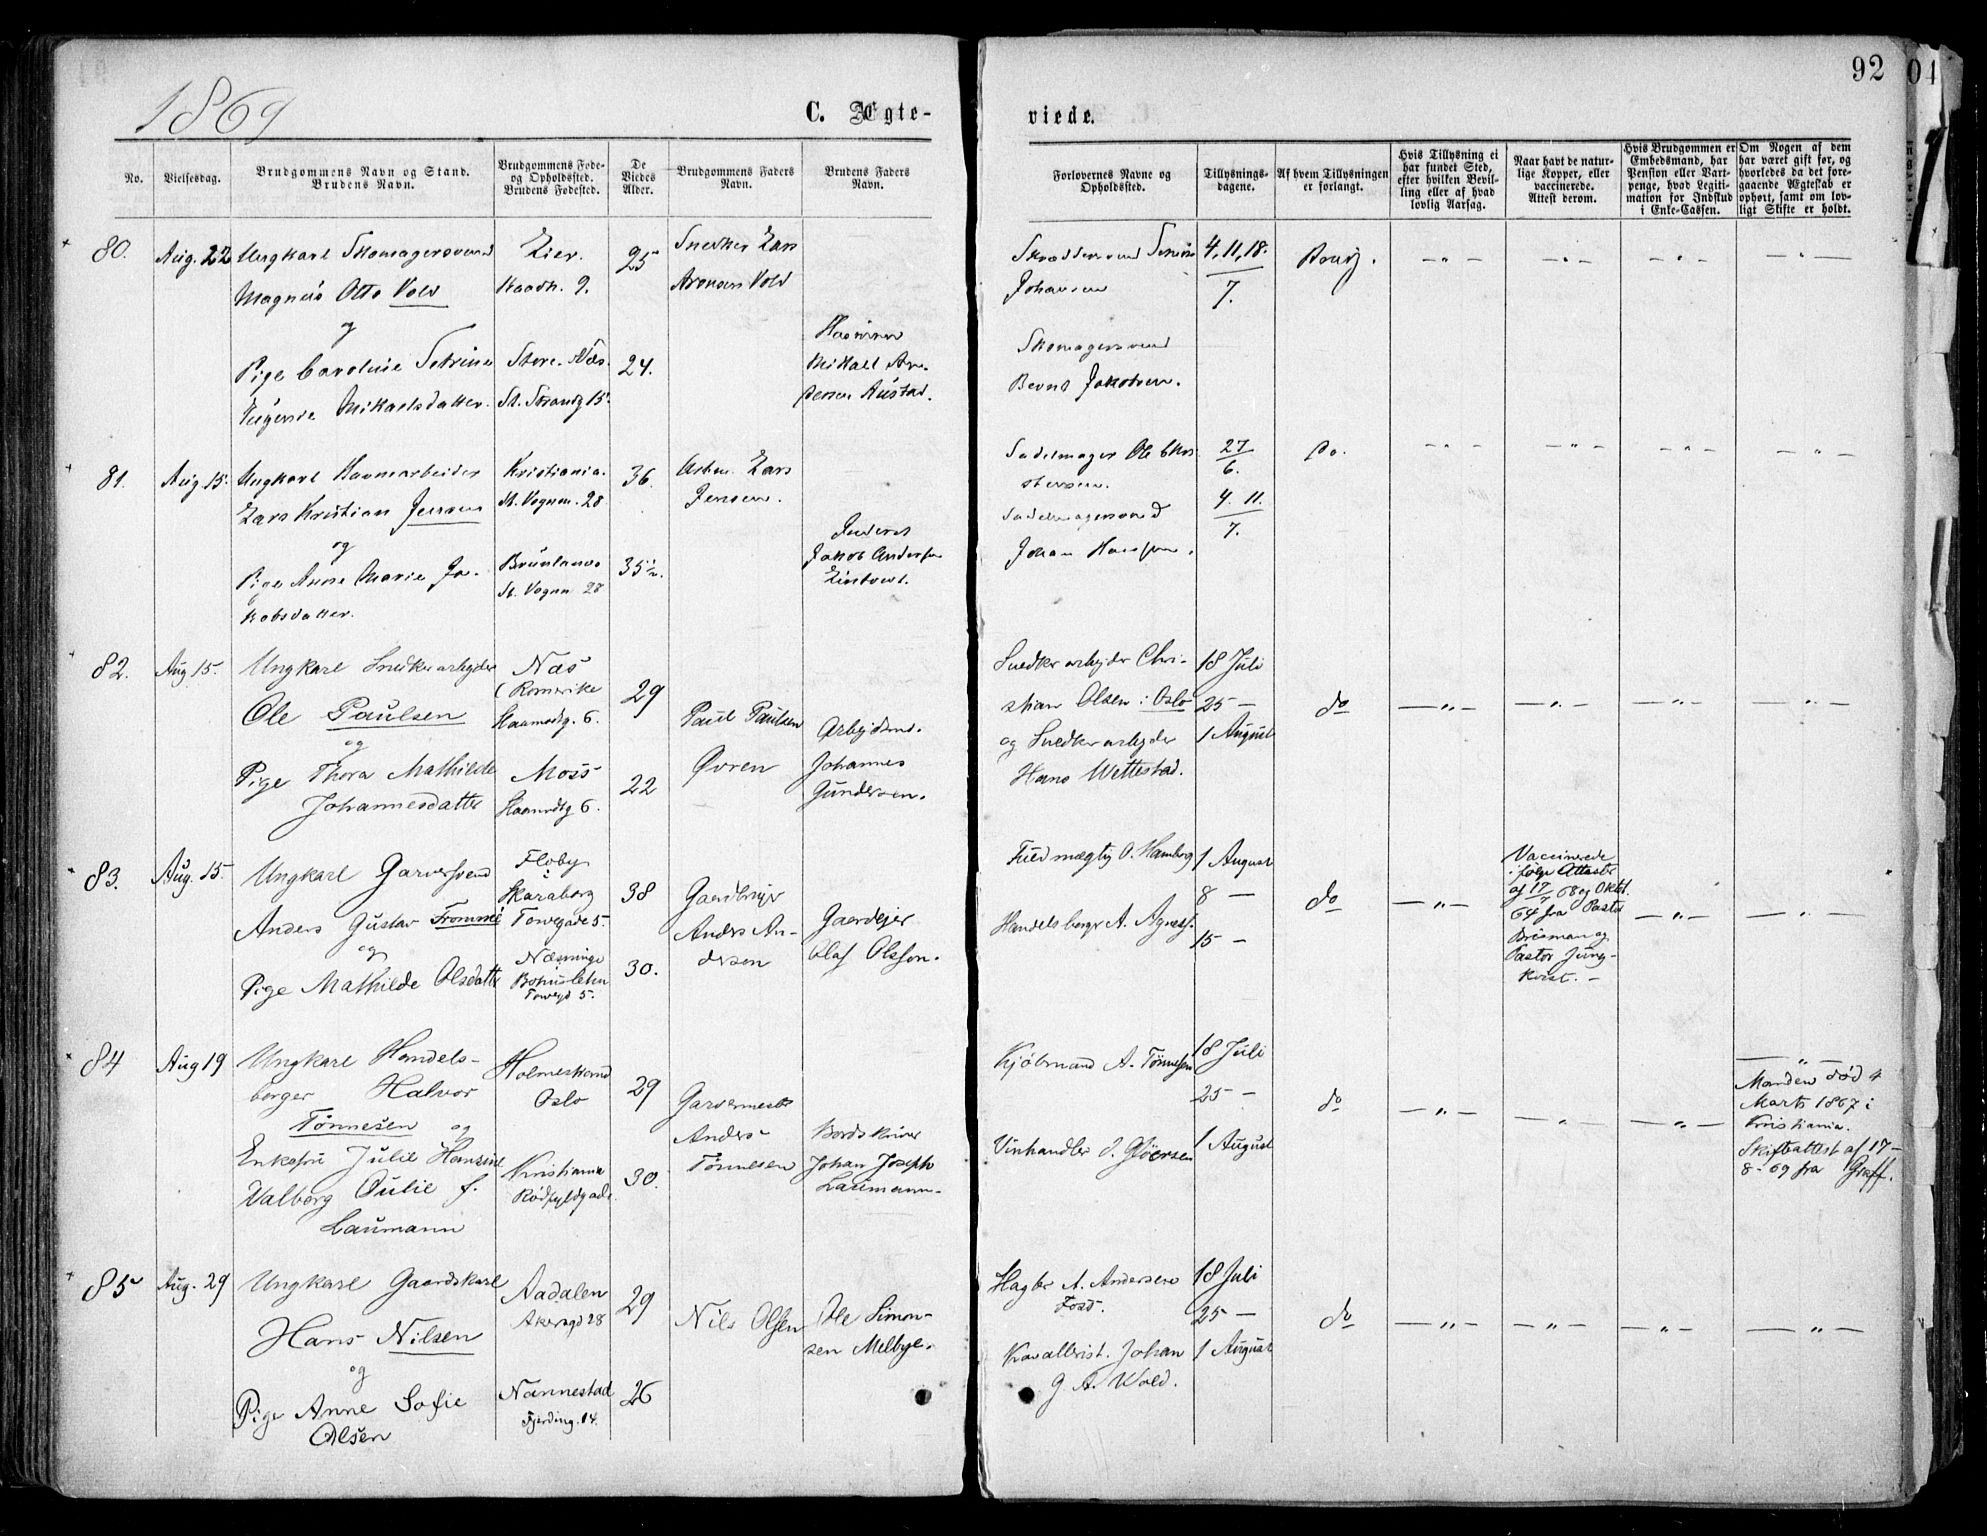 1869
C. Ægte-
viede.
92
No.
Vielsesdag.
Brudgommens Navn og Stand.
Brudens Navn.
Brudgommens Føde-
og Opholdssted.
Brudens Fødested.
De
Viedes
Alder.
Brudgommens Faders
Navn.
Brudens Faders
Navn.
Forlovernes Navne og
Opholdssted.
Tillysnings-
dagene.
Af hvem Tillysningen
er forlangt.
Hvis Tillysning ei
har fundet Sted,
efter hvilken Bevil-
ling eller af hvad
lovlig Aarsag.
Naar havt de natur-
lige Kopper, eller
vaccinerede.
Attest derom.
Hvis Brudgommen er
Embedsmand, har
Pension eller Vart-
penge, hvad Legiti-
mation for Indskud
i Enke-Cassen.
Om Nogen af dem
har været gift før, og
hvorledes da det fore-
gaaende Ægteskab er
ophørt, samt om lov-
ligt Skifte er holdt.
80.
Aug. 22
Ungkarl Skomagersvend
Magnus Otto Vold
og
Pige Caroline Petrine
Mikaelsdatter.
Lier.
9.
Store
St. Strandg 15.
25
24.
Snedker Lars
Aronsen Vold
Husmand
Mikael
Skræddersvend
Johansen
Skomagersvend
Bernt Jakobsen.
4, 11, 18.
7.
Brudg.
81.
Aug 15.
Ungkarl Havnearbeider
Lars Kristian Jensen
og
Pige Anne Marie Ja-
kobsdatter.
Kristiania.
St. Vognm. 28
Brunlanæs
St. Vognm. 28
36.
35½.
Arbm. Lars
Jensen.
Inderst
Jakob Andersen
Sadelmager Ole
Sadelmagersvend
Johan Hansen.
27
6.
4. 11.
7.
Do.
82.
Aug 15.
Ungkarl Snedkerarbeider
Ole Paulsen
og
Pige Thora Mathilde
Johannesdatter
Næs
(Romerike
6.
Moss
6.
29
22
Paul Paulsen
Øvren
Arbejdsmd.
Johannes
Gundersen.
Snedkerarbejder Chri-
stian Olsen i Oslo
og Snedkerarbejder
Hans Wettestad.
18 Juli
25 —
1 August
do
83.
Aug. 15.
Ungkarl Garversvend
Anders Gustav Frommé
og
Pige Mathilde Olsdatter
Floby
i
Skaraborg
Torvegade 5.
Næsninge
Bohuslehn
Torvegd 5.
38
30.
Gaardbruger
Anders An-
dersen
Gaardejer
Olaf Olsson.
Fuldmægtig O. Hamborg
Handelsborger A.
1 August
8 —
15 —
do
Vaccinerede
ifølge Attester
af 17/7 68 og Oktbr.
64 fra Pastor
Brisman og
Pastor Jung-
kvist. —
84
Aug 19
Ungkarl Handels-
borger Halvor
Tønnesen og
Enkefru Julie Hansine
Valborg Oulie f.
Laumann
Holmestrand
Oslo
Kristiania
Rødfyldgade.
29
30.
Garvermester
Anders
Tønnesen
Bordskriver
Johan Joseph
Laumann.
Kjøbmand A. Tønnesen
Vinhandler J. Gløersen
18 Juli
25 —
1 August
do
Manden død 4
Marts 1867 i
Kristiania.
Skifteattest af 17-
8-69 fra Græff.
85
Aug. 29
Ungkarl Gaardskarl
Hans Nilsen
og
Pige Anne Sofie
Olsen
Aadalen
Akersgd 28
Nannestad
Fjerding. 14.
29
26
Nils Olsen
Ole Simon-
sen Melbye.
Hagbr A. Andersen
Foss.
Kavallerist. Johan
G. A. Wold.
18 Juli
25 —
1 August
do